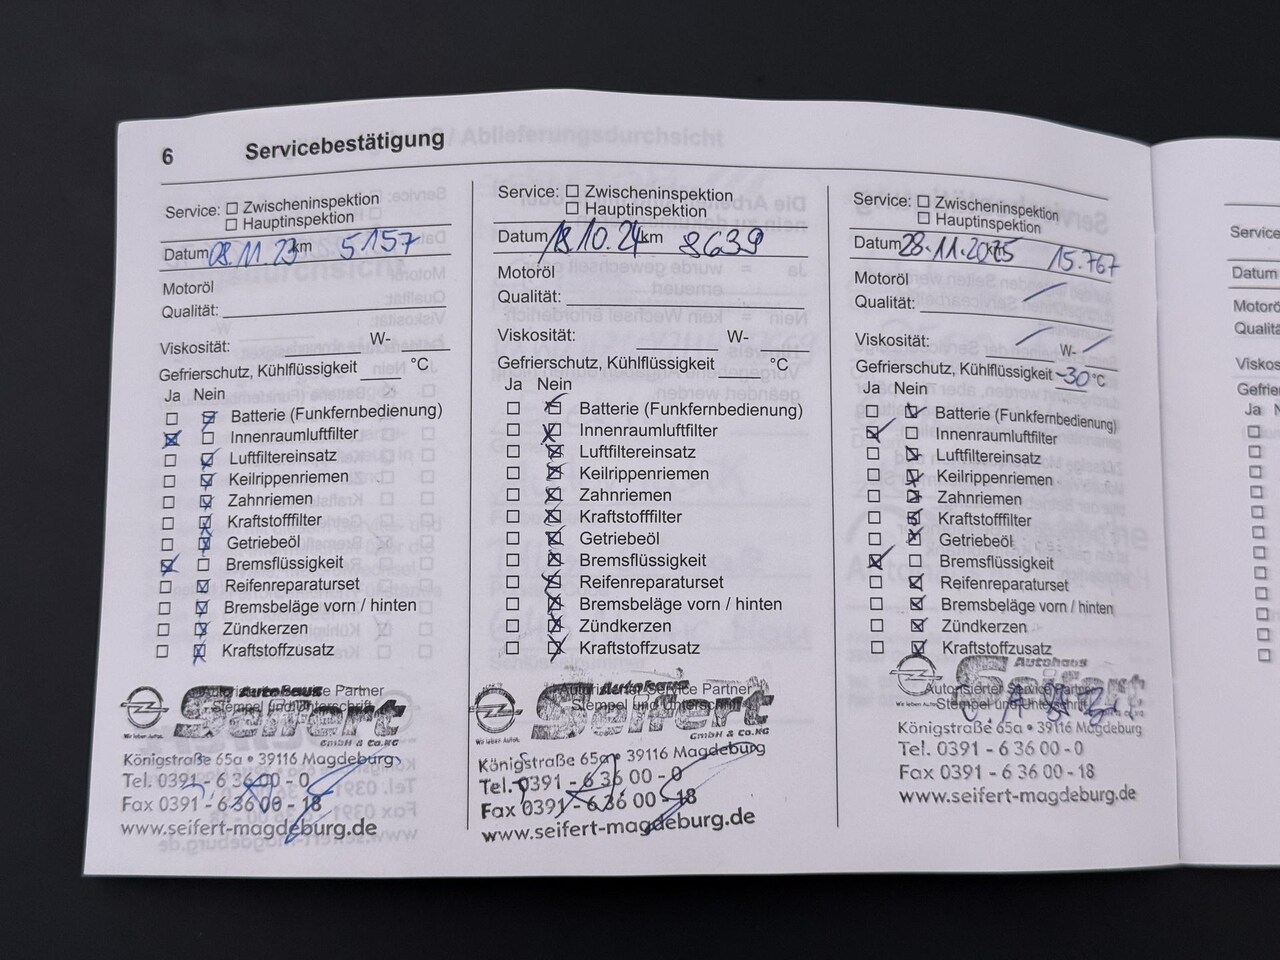 6 Servicebestätigung
Service: Zwischeninspektion
Hauptinspektion
Datum 08.11.23 km 5.157
Motoröl
Qualität:
Viskosität: W-
Gefrierschutz, Kühlflüssigkeit °C
Ja Nein
Batterie (Funkfernbedienung)
Innenraumluftfilter
Luftfiltereinsatz
Keilrippenriemen
Zahnriemen
Kraftstofffilter
Getriebeöl
Bremsflüssigkeit
Reifenreparaturset
Bremsbeläge vorn / hinten
Zündkerzen
Kraftstoffzusatz
Autorisierter Service Partner
Stempel und Unterschrift
Autohaus
Seifert
GmbH & Co.KG
Wir leben Autos.
Königstraße 65a • 39116 Magdeburg
Tel. 0391 - 6 36 00 - 0
Fax 0391 - 6 36 00 - 18
www.seifert-magdeburg.de
Service: Zwischeninspektion
Hauptinspektion
Datum 18.10.24 km 8639
Motoröl
Qualität:
Viskosität: W-
Gefrierschutz, Kühlflüssigkeit °C
Ja Nein
Batterie (Funkfernbedienung)
Innenraumluftfilter
Luftfiltereinsatz
Keilrippenriemen
Zahnriemen
Kraftstofffilter
Getriebeöl
Bremsflüssigkeit
Reifenreparaturset
Bremsbeläge vorn / hinten
Zündkerzen
Kraftstoffzusatz
Autorisierter Service Partner
Stempel und Unterschrift
Autohaus
Seifert
GmbH & Co.KG
Wir leben Autos.
Königstraße 65a • 39116 Magdeburg
Tel. 0391 - 6 36 00 - 0
Fax 0391 - 6 36 00 - 18
www.seifert-magdeburg.de
Service: Zwischeninspektion
Hauptinspektion
Datum 28.11.2025 km 15.767
Motoröl
Qualität:
Viskosität: W-
Gefrierschutz, Kühlflüssigkeit -30 °C
Ja Nein
Batterie (Funkfernbedienung)
Innenraumluftfilter
Luftfiltereinsatz
Keilrippenriemen
Zahnriemen
Kraftstofffilter
Getriebeöl
Bremsflüssigkeit
Reifenreparaturset
Bremsbeläge vorn / hinten
Zündkerzen
Kraftstoffzusatz
Autohaus
Seifert
Autorisierter Service Partner
Stempel und Unterschrift
Königstraße 65a • 39116 Magdeburg
Tel. 0391 - 6 36 00 - 0
Fax 0391 - 6 36 00 - 18
www.seifert-magdeburg.de
Service
Datum
Motorö
Qualitä
Viskos
Gefrie
Ja